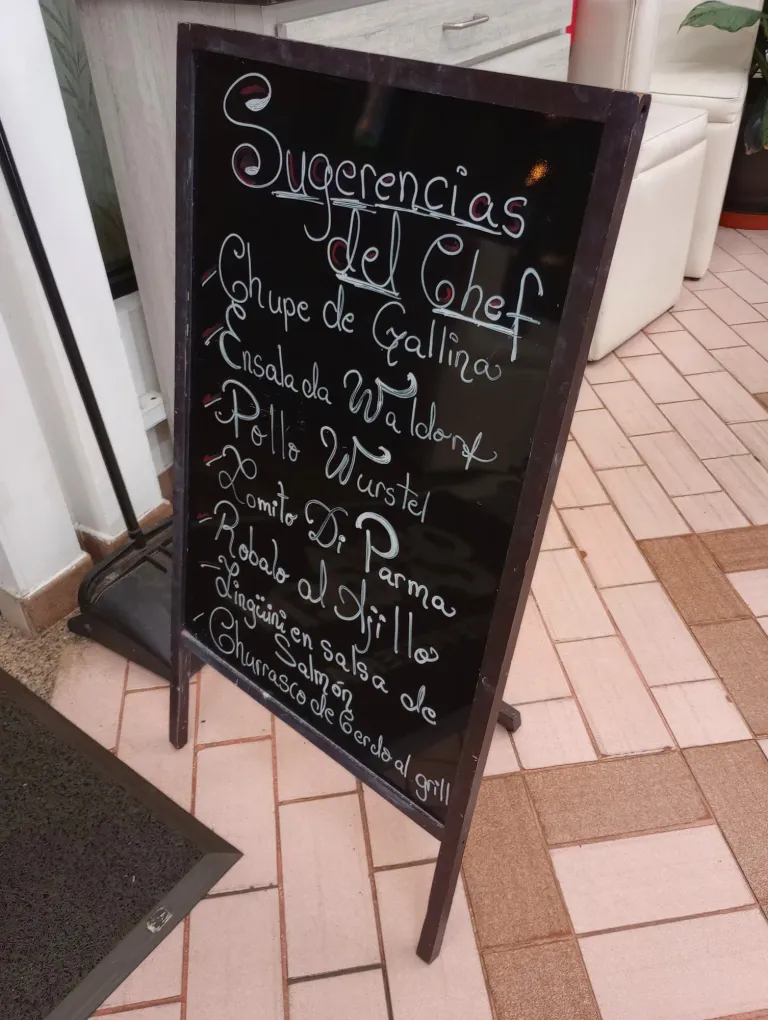 Sugerencias
del Chef
- Chupe de Gallina
- Ensalada Waldorf
- Pollo Wurstel
- Lomito Di Parma
- Robalo al Ajillo
- Lingüini en salsa de
Salmón
- Churrasco de Cerdo al grill